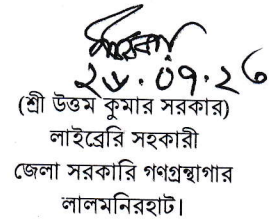 ২৮.০৭.২৬
(শ্রী উত্তম কুমার সরকার)
লাইব্রেরি সহকারী
জেলা সরকারি গণগ্রন্থাগার
লালমনিরহাট।